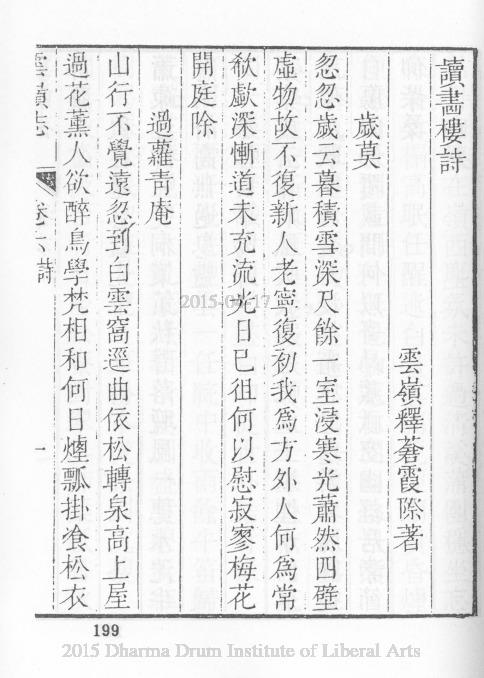 讀畵樓詩
雲嶺釋蒼霞際著
歲莫
忽忽歲云暮積雪深尺餘室浸寒光蕭然四壁
虛物故不復新人老寧復初我爲方外人何爲常
欷歔深慚道未充流光日已徂何以慰寂寥梅花
開庭除
過蘿青庵
山行不覺遠忽到白雲窩逕曲依松轉泉高上屋
過花薰人欲醉鳥學梵相和何日煙瓢掛飡松衣
雲嶺志 卷六詩 一
199
2015-04-17
2015 Dharma Drum Institute of Liberal Arts